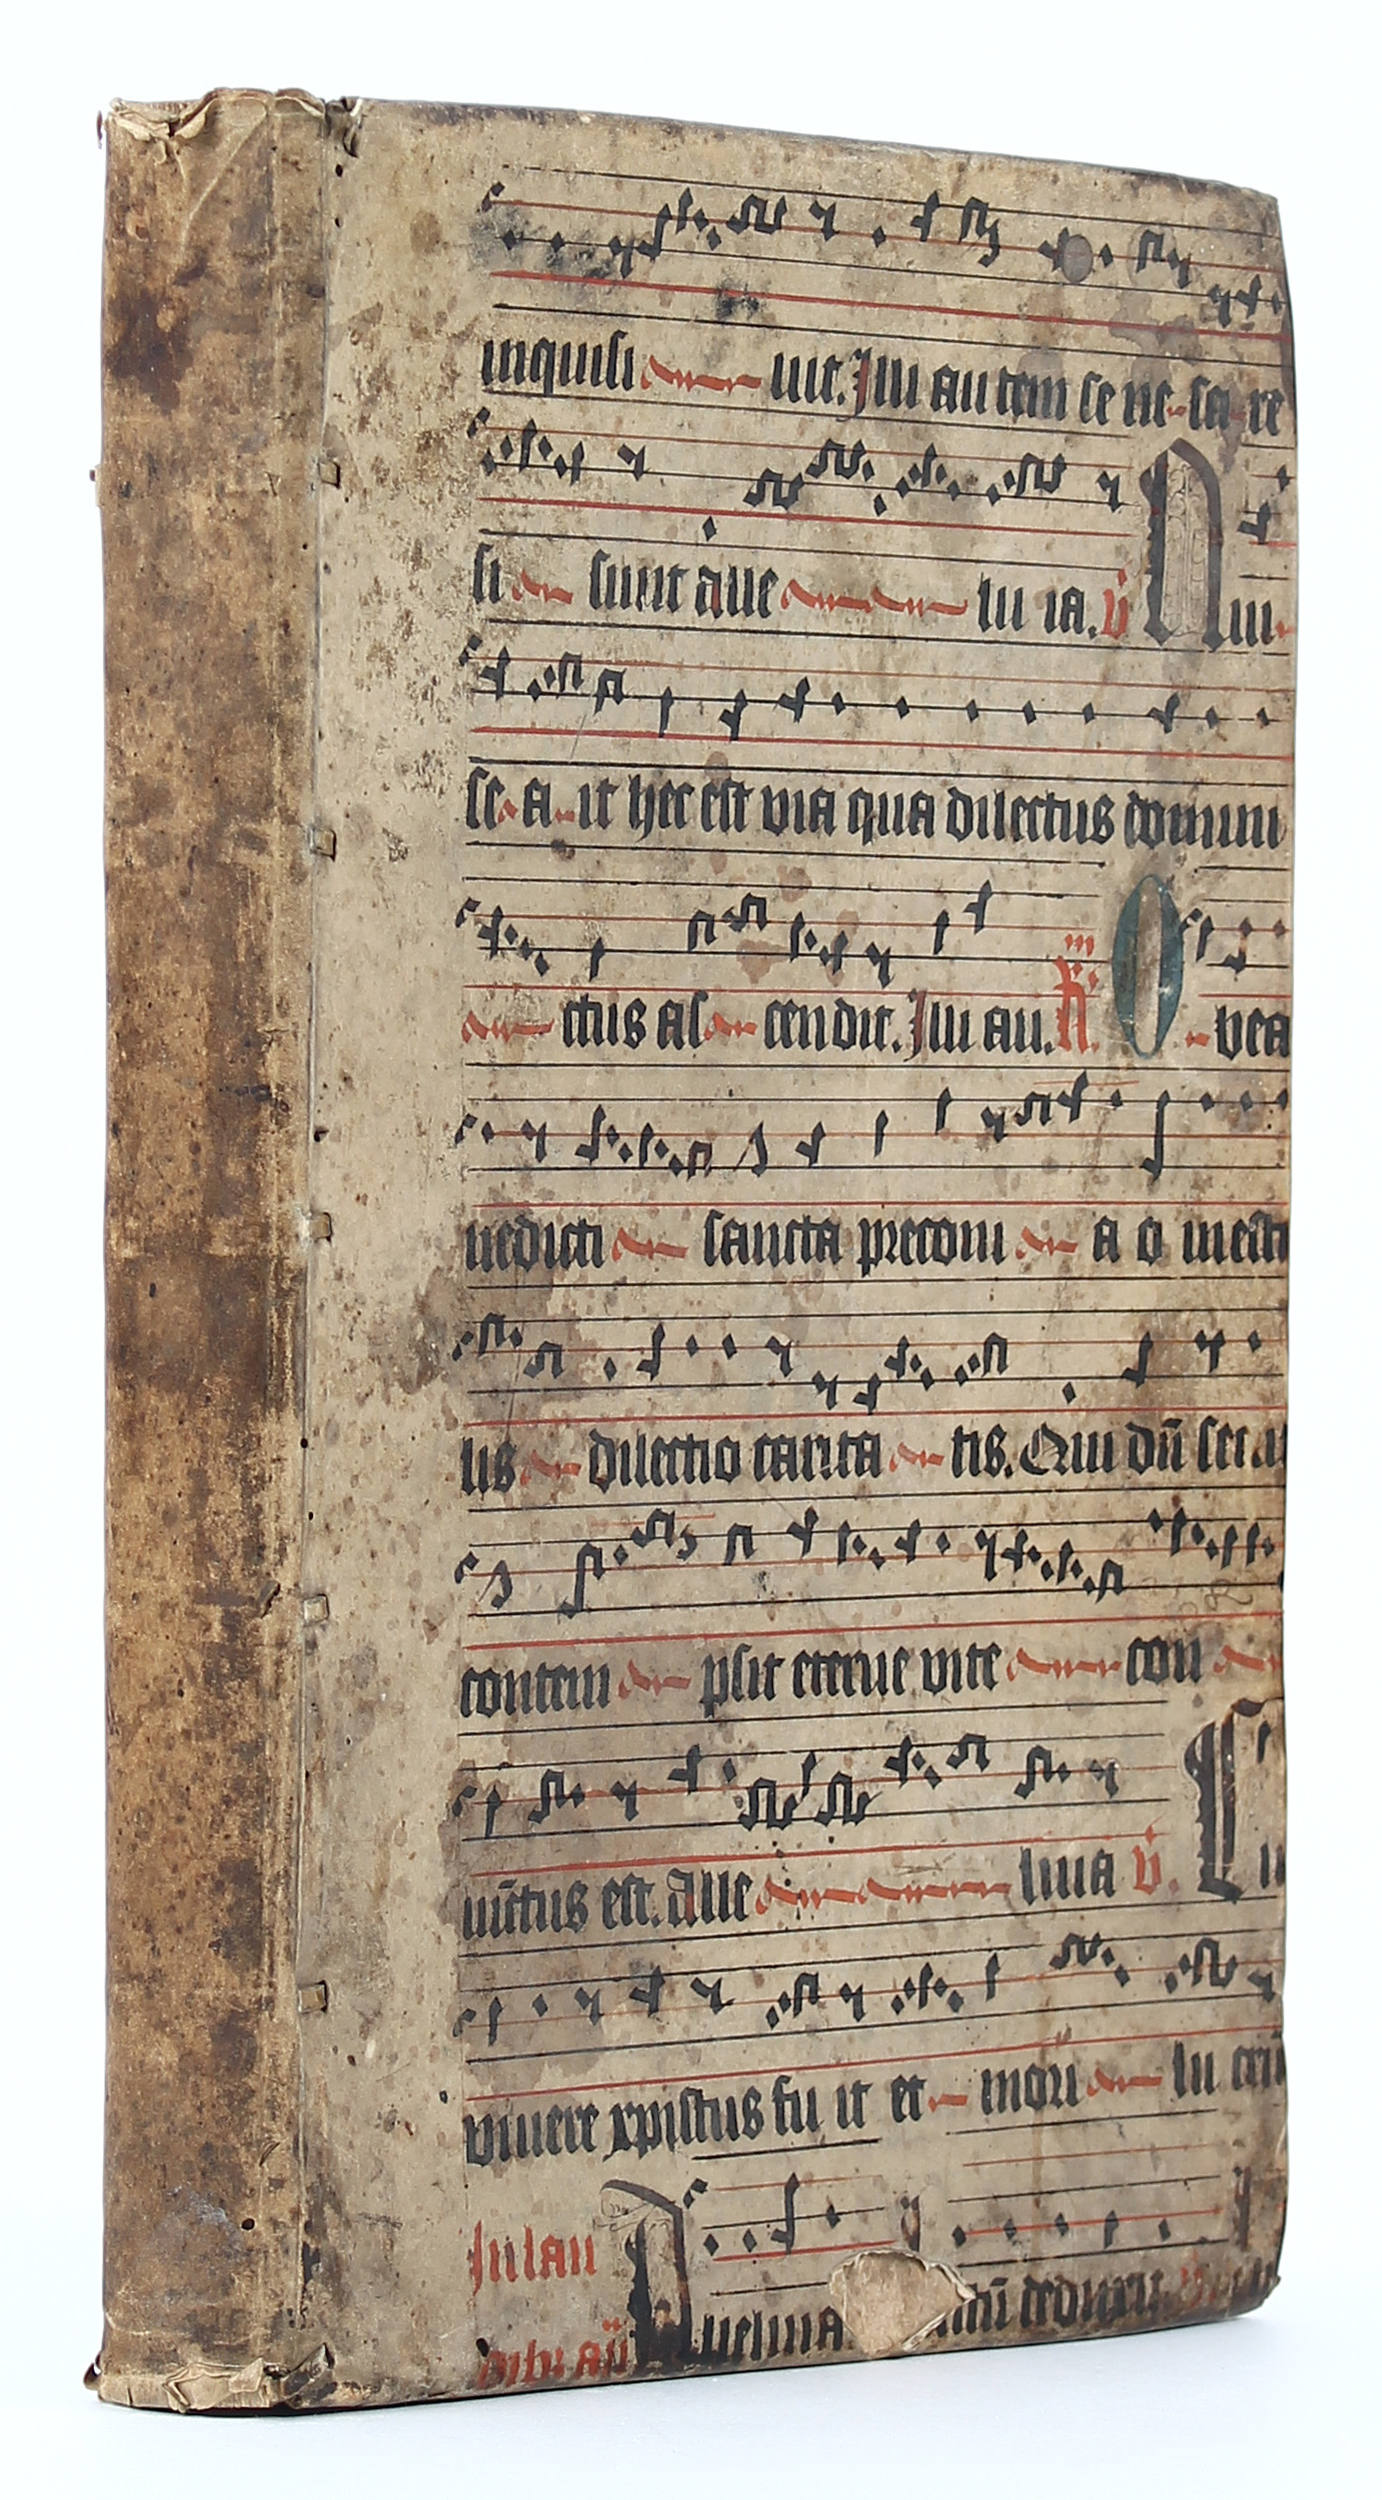 inquisi uit. Illi autem se ne sci re
si sunt alle lu ia. v Nui
sc a it hec est via qua dilectus domini
ctus as cendit. Illi au. R. O bea
nedicti sancta preconi a o inesti
lis dilectio carita tis. Qui dū secu
contem psit eterne vite con
iūctus est. alle luia v. Cu
viuere xpistus fu it et mori lu crū
In lau
dibz añ